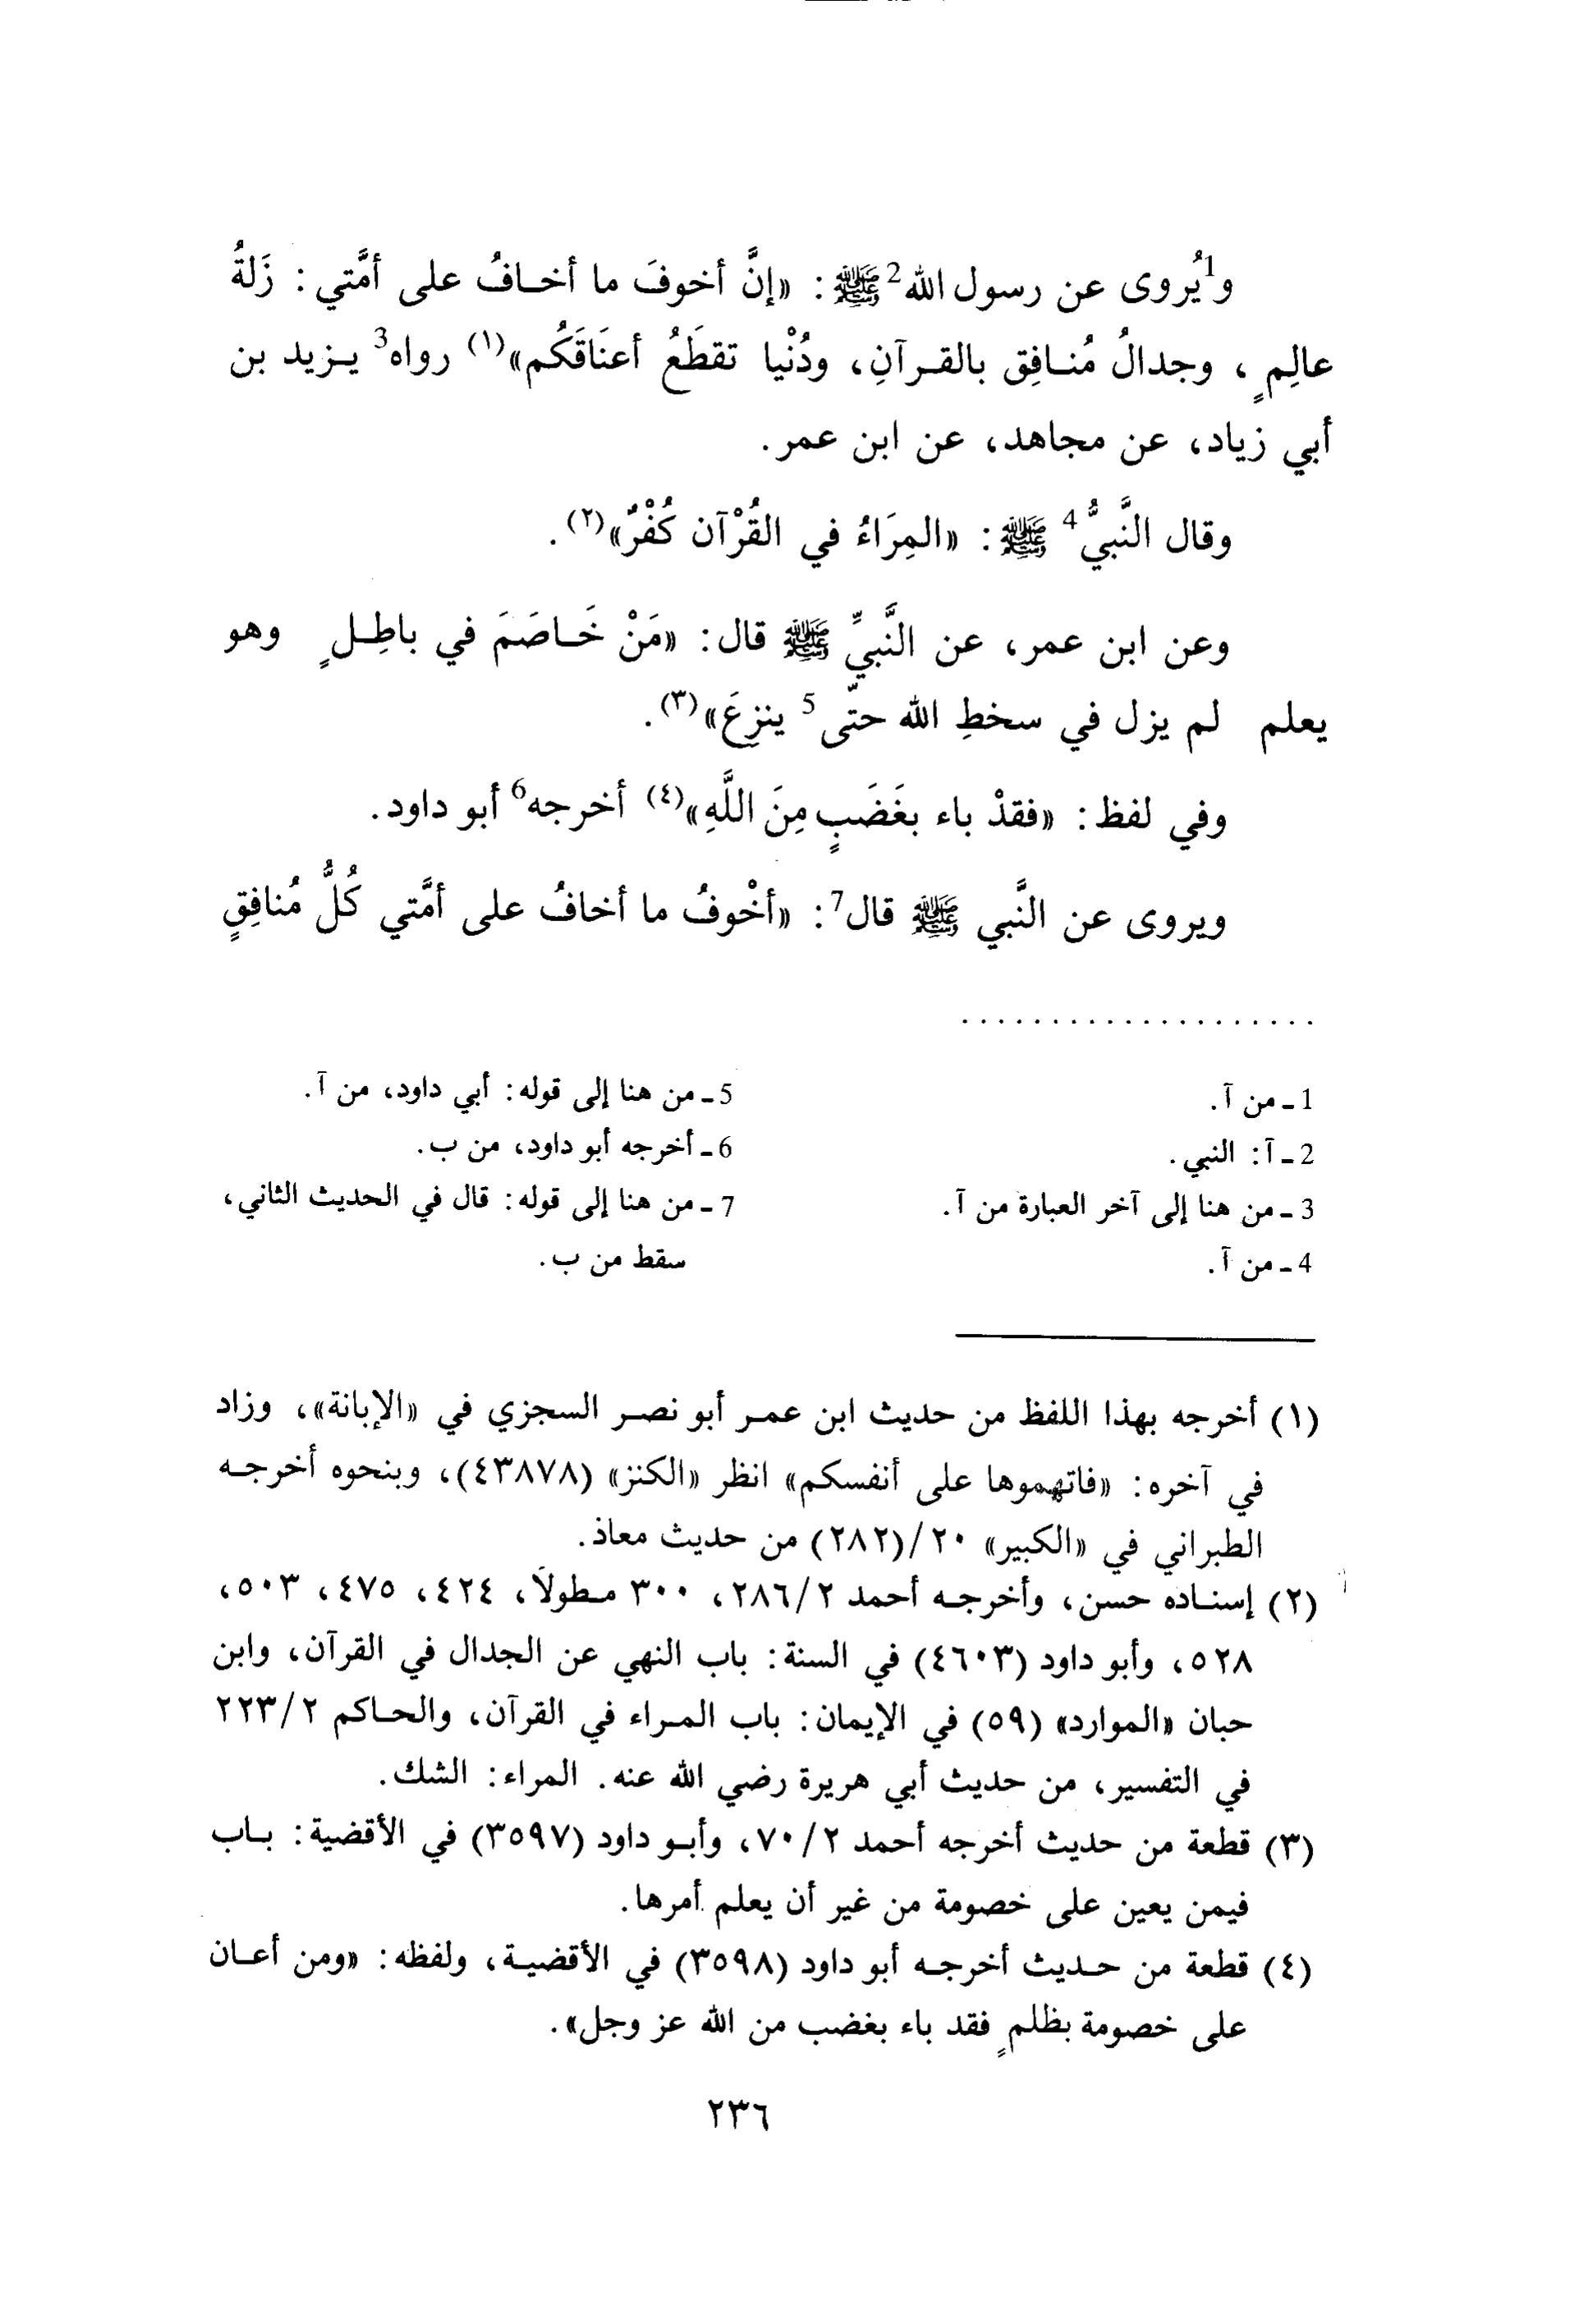 و1يُروى عن رسول الله2 ﷺ: «إنَّ أخوفَ ما أخـافُ على أمَّتي: زَلةُ
عالِمٍ، وجدالُ مُنـافِق بالقـرآنِ، ودُنْيا تقطَعُ أعنَاقَكُم»(١) رواه3 يـزيد بن
أبي زياد، عن مجاهد، عن ابن عمر.
وقال النَّبيُّ4 ﷺ: «المِرَاءُ في القُرْآن كُفْرٌ»(٢).
وعن ابن عمر، عن النَّبيِّ ﷺ قال: «مَنْ خَـاصَمَ في باطِـلٍ وهو
يعلم لم يزل في سخطِ الله حتّى5 ينزِعَ»(٣).
وفي لفظ: «فقدْ باء بغَضَبٍ مِنَ اللَّهِ»(٤) أخرجه6 أبو داود.
ويروى عن النَّبي ﷺ قال7: «أخْوفُ ما أخافُ على أمَّتي كُلُّ مُنافِقٍ
....................
1 ـ من آ.
2 ـ آ: النبي.
3 ـ من هنا إلى آخر العبارة من آ.
4 ـ من آ.
5 ـ من هنا إلى قوله: أبي داود، من آ.
6 ـ أخرجه أبو داود، من ب.
7 ـ من هنا إلى قوله: قال في الحديث الثاني،
سقط من ب.
(١) أخرجه بهذا اللفظ من حديث ابن عمـر أبو نصـر السجزي في «الإبانة»، وزاد
في آخره: «فاتهموها على أنفسكم» انظر «الكنز» (٤٣٨٧٨)، وبنحوه أخرجـه
الطبراني في «الكبير» ٢٠/(٢٨٢) من حديث معاذ.
(٢) إسنـاده حسن، وأخرجـه أحمد ٢/٢٨٦، ٣٠٠ مـطولاً، ٤٢٤، ٤٧٥، ٥٠٣،
٥٢٨، وأبو داود (٤٦٠٣) في السنة: باب النهي عن الجدال في القرآن، وابن
حبان «الموارد» (٥٩) في الإيمان: باب المـراء في القرآن، والحـاكم ٢/٢٢٣
في التفسير، من حديث أبي هريرة رضي الله عنه. المراء: الشك.
(٣) قطعة من حديث أخرجه أحمد ٢/٧٠، وأبـو داود (٣٥٩٧) في الأقضية: بـاب
فيمن يعين على خصومة من غير أن يعلم أمرها.
(٤) قطعة من حـديث أخرجـه أبو داود (٣٥٩٨) في الأقضيـة، ولفظه: «ومن أعـان
على خصومة بظلمٍ فقد باء بغضب من الله عز وجل».
٢٣٦